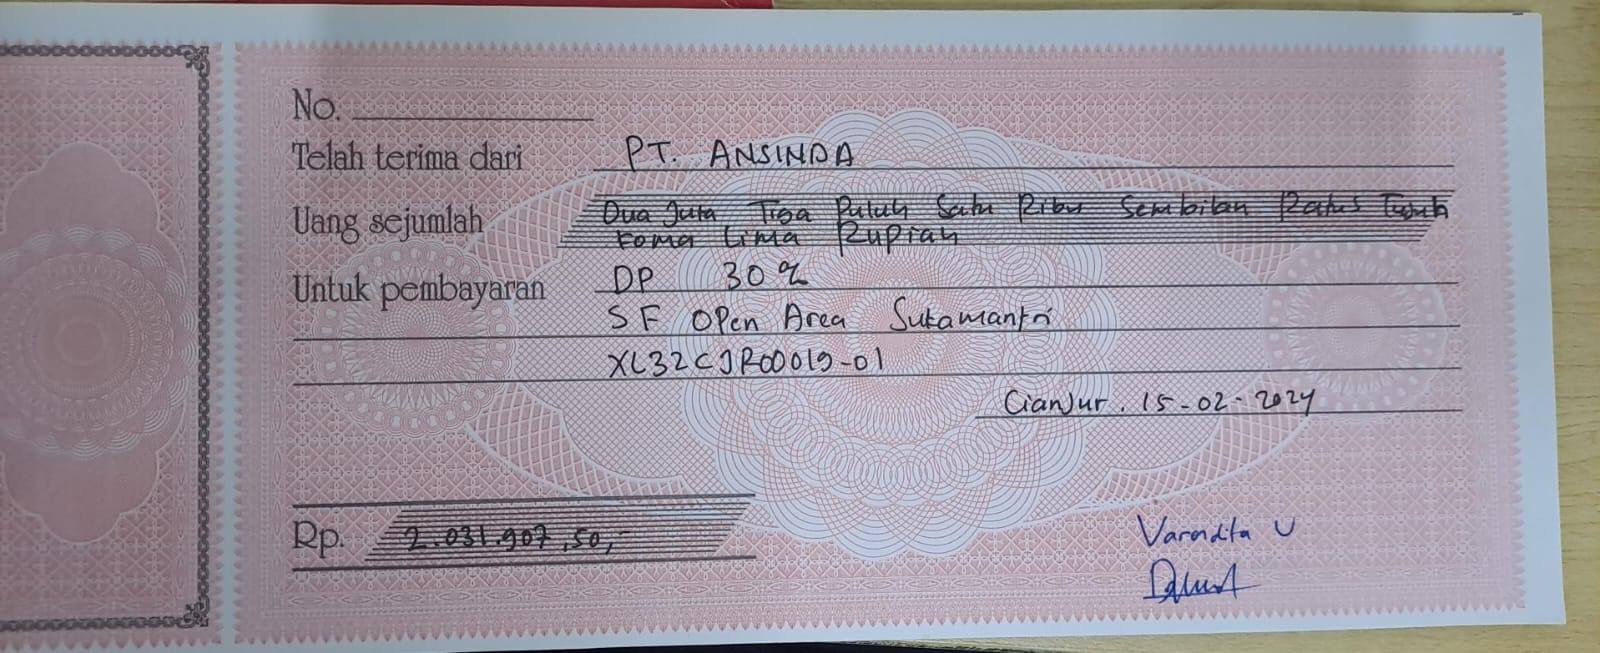 No.
Telah terima dari PT. ANSINDA
Uang sejumlah Dua Juta Tiga Puluh Satu Ribu Sembilan Ratus Tujuh
Koma Lima Rupiah
Untuk pembayaran DP 30 %
SF Open Area Sukamantri
XL32CJR00019-01
Cianjur. 15-02-2024
Rp. 2.031.907,50,-
Varendita U